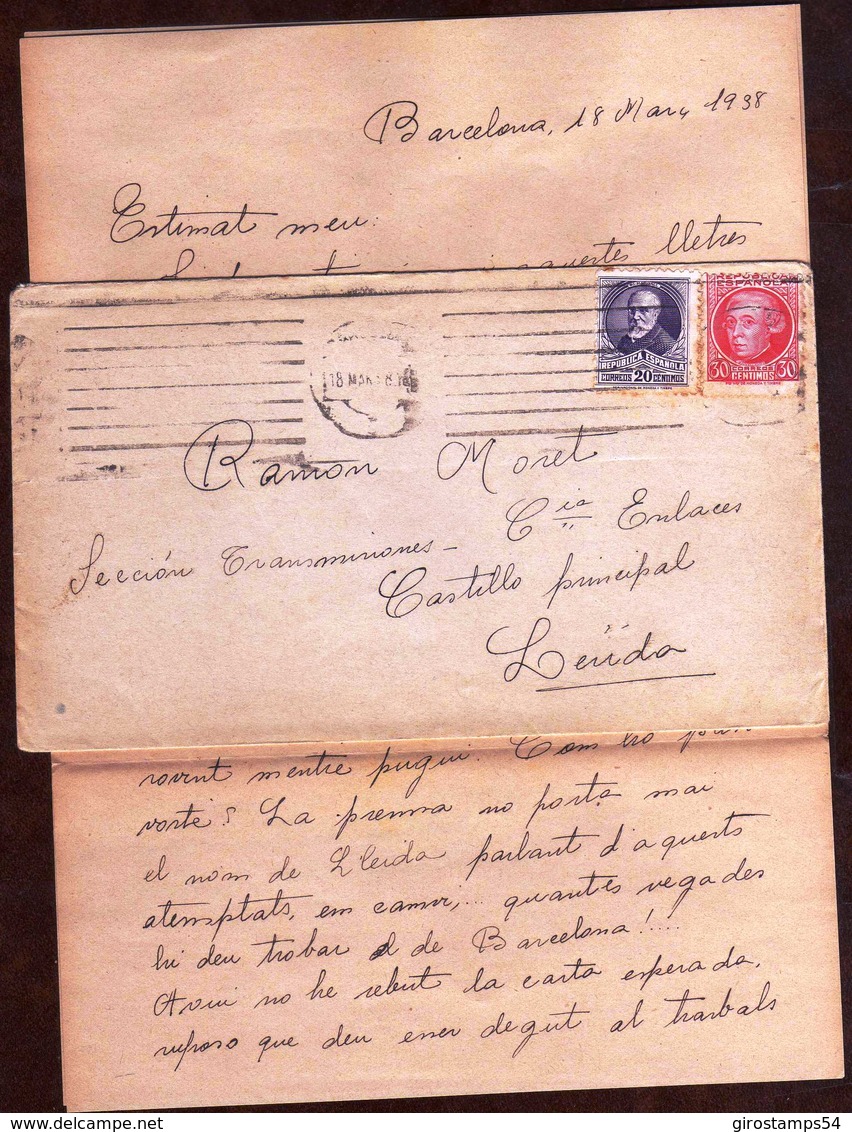 Barcelona, 18 Març 1938
Estimat meu:
aquestes lletres
REPUBLICA
ESPAÑOLA
REPUBLICA ESPAÑOLA
CORREOS 20 CENTIMOS
30 CORREOS 30
CENTIMOS
18 MAR
Ramón Moret
Cia Enlaces
Sección Transmisiones -
Castillo principal
Lérida
sovint mentre pugui. Com ho
vorté? La premsa no porta mai
el nom de Lleida parlant d'aquests
atemptats, em canvi,... quantes vegades
hi deu trobar el de Barcelona!....
Avui no he rebut la carta esperada,
suposo que deu esser degut al trasbals
girostamps54